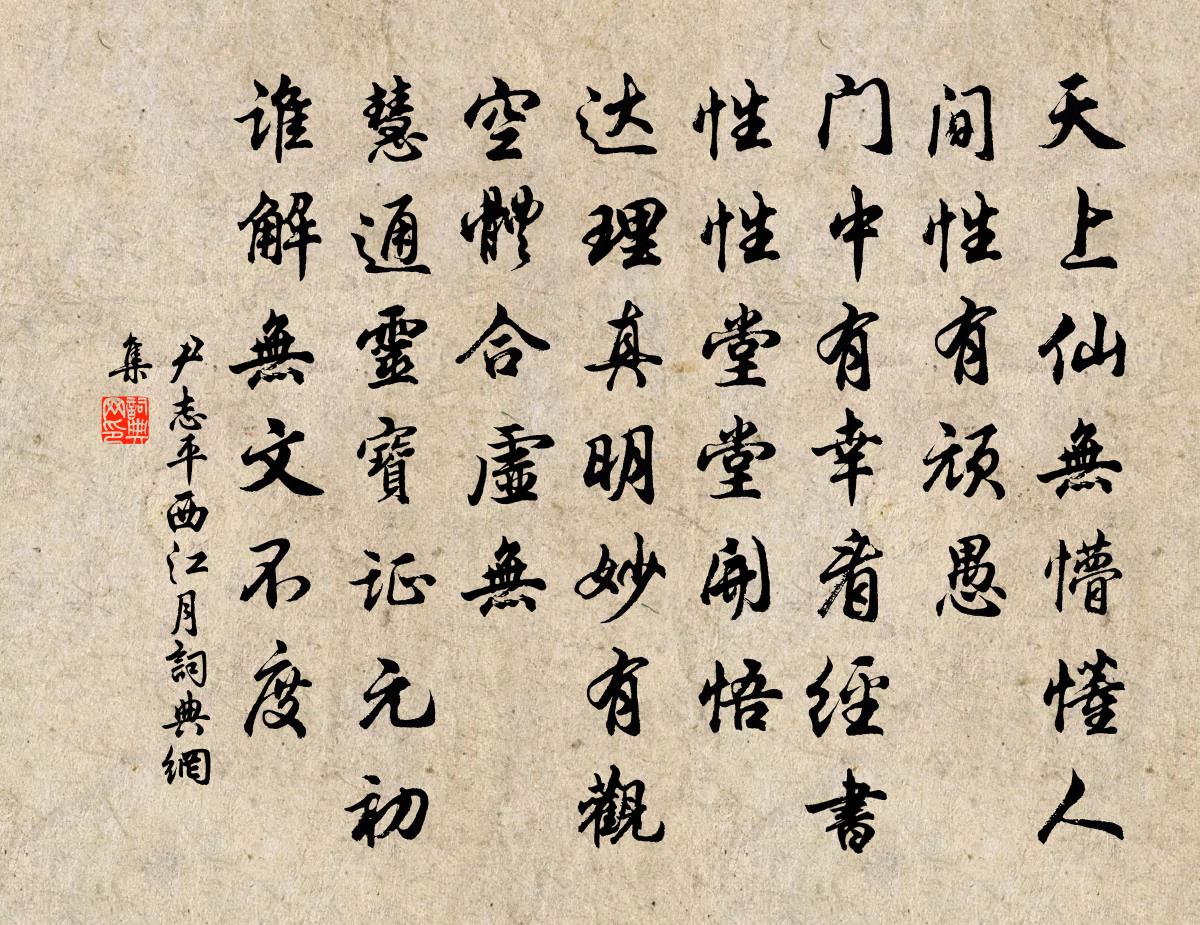 天上仙無懵懂人
间性有顽愚
门中有幸看經書
性性堂堂開悟
达理真明妙有觀
空體合虛無
慧通靈寶证元初
谁解無文不度
尹志平西江月詞典網
集
詞典网印